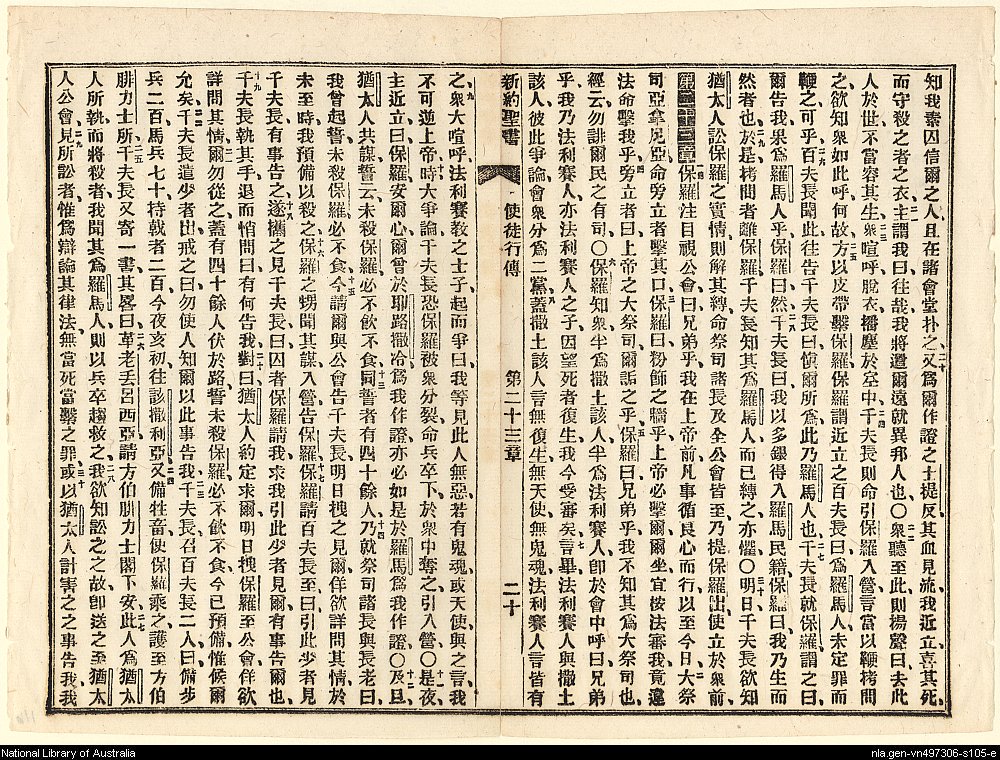 知我素囚信爾之人且在諸會堂扑之又爲爾作證之士提反其血見流我近立喜其死
而守殺之者之衣主謂我曰往哉我將遣爾遠就異邦人也○衆聽至此則揚聲曰夫此
人於世不當容其生衆喧呼脫衣播塵於空中千夫長則命引保羅入營言當以鞭拷問
之欲知衆如此呼何故方以皮帶繫保羅保羅謂近立之百夫長曰爲羅馬人未定罪而
鞭之可乎百夫長聞此往告千夫長曰愼爾所爲此乃羅馬人也千夫長就保羅謂之曰
爾告我果爲羅馬人乎保羅曰然千夫長曰我以多銀得入羅馬民籍保羅曰我乃生而
然者也於是拷問者離保羅千夫長知其爲羅馬人而已縛之亦懼○明日千夫長欲知
猶太人訟保羅之實情則解其縛命祭司諸長及全公會皆至乃提保羅出使立於衆前
第二十三章保羅注目視公會曰兄弟乎我在上帝前凡事循良心而行以至今日大祭
司亞拿尼亞命旁立者擊其口保羅曰粉飾之牆乎上帝必擊爾爾坐宜按法審我竟違
法命擊我乎旁立者曰上帝之大祭司爾詬之乎保羅曰兄弟乎我不知其爲大祭司也
經云勿誹爾民之有司○保羅知衆半爲撒土該人半爲法利賽人卽於會中呼曰兄弟
乎我乃法利賽人亦法利賽人之子因望死者復生我今受審矣言畢法利賽人與撒土
該人彼此爭論會衆分爲二黨蓋撒土該人言無復生無天使無鬼魂法利賽人言皆有
新約聖書 使徒行傳 第二十三章 二十
之衆大喧呼法利賽教之士子起而爭曰我等見此人無惡若有鬼魂或天使與之言我
不可逆上帝時大爭論千夫長恐保羅被衆分裂命兵卒下於衆中奪之引入營○是夜
主近立曰保羅安爾心爾曾於耶路撒冷爲我作證亦必如是於羅馬爲我作證○及旦
猶太人共謀誓云未殺保羅必不飲不食同誓者有四十餘人乃就祭司諸長與長老曰
我曾起誓未殺保羅必不食今請爾與公會告千夫長明日拽之見爾佯欲詳問其情於
未至時我預備以殺之保羅之甥聞其謀入營告保羅保羅請百夫長至曰引此少者見
千夫長有事告之遂攜之見千夫長曰囚者保羅請我求我引此少者見爾有事告爾也
千夫長執其手退而悄問曰有何告我對曰猶太人約定求爾明日拽保羅至公會佯欲
詳問其情爾勿從之蓋有四十餘人伏於路誓未殺保羅必不飲不食今已預備惟候爾
允矣千夫長遣少者出戒之曰勿使人知爾以此事告我千夫長召百夫長二人曰備步
兵二百馬兵七十持戟者二百今夜亥初往該撒利亞又備牲畜使保羅乘之護至方伯
腓力士所千夫長又寄一書其畧曰革老丟呂西亞請方伯腓力士閣下安此人爲猶太
人所執而將殺者我聞其爲羅馬人則以兵卒趨救之我欲知訟之之故卽送之至猶太
人公會見所訟者惟爲辯論其律法無當死當繫之罪或以猶太人計害之之事告我我
National Library of Australia
nla.gen-vn497306-s105-e